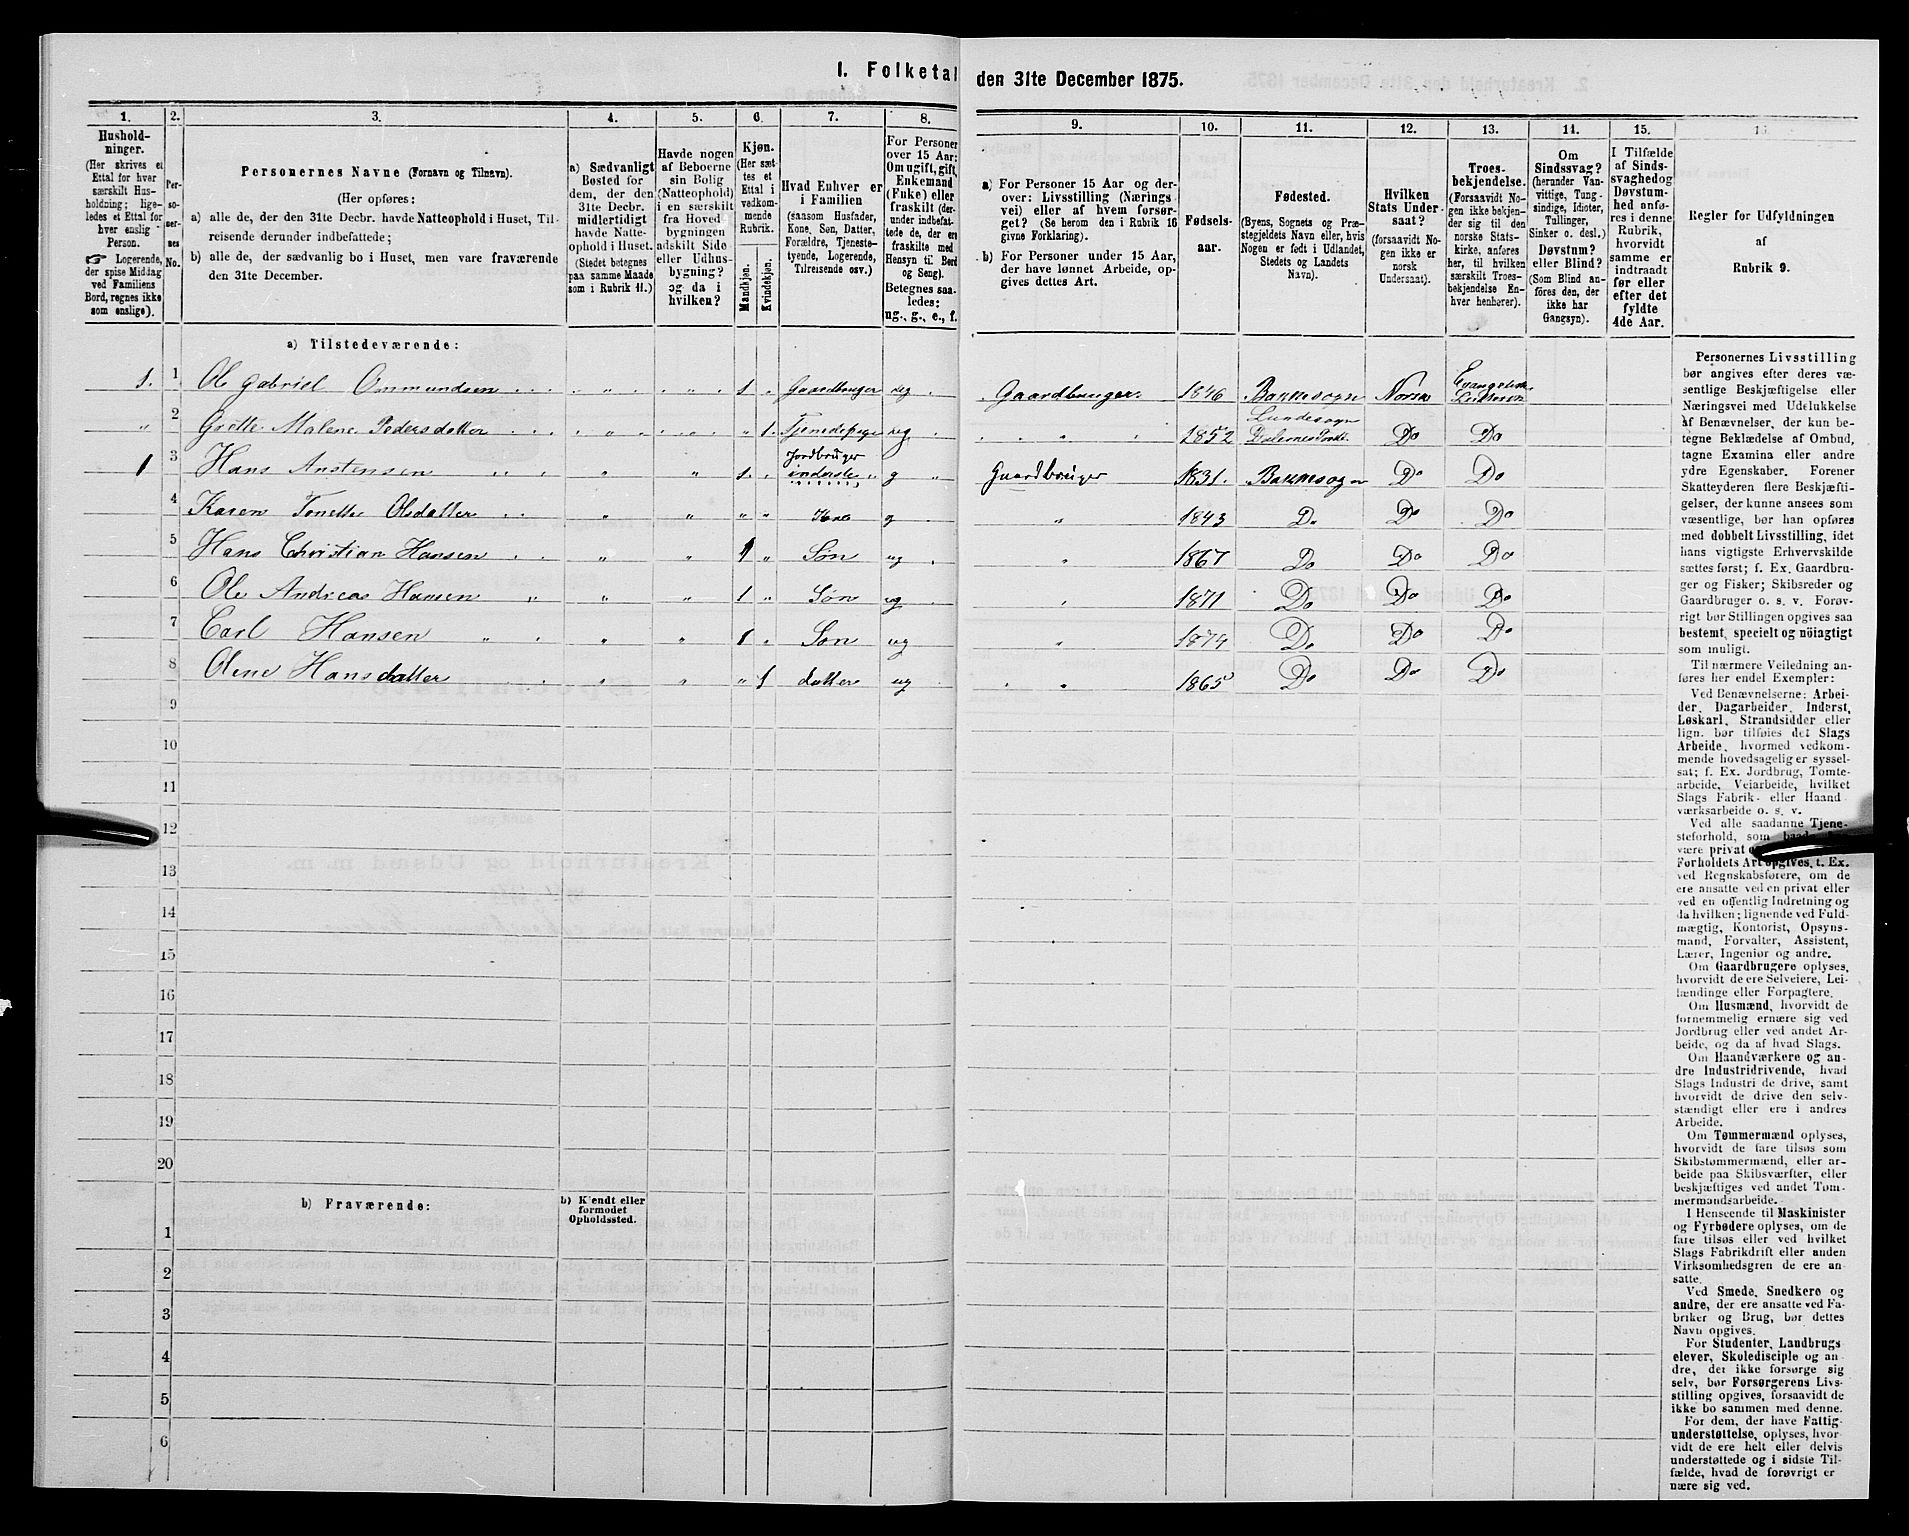 I. Folketal den 31te December 1875.
1. 2. 3. 4. 5. 6. 7. 8. 9. 10. 11. 12. 13. 14. 15. 16.
Hushold-
ninger.
(Her skrives et
Ettal for hver
særskilt Hus-
holdning; lige-
ledes et Ettal for
hver enslig
Person.
☞ Logerende,
der spise Middag
ved Familiens
Bord, regnes ikke
som enslige).
Per-
so-
ner-
nes
No.
Personernes Navne (Fornavn og Tilnavn).
(Her opføres:
a) alle de, der den 31te Decbr. havde Natteophold i Huset, Til-
reisende derunder indbefattede;
b) alle de, der sædvanlig bo i Huset, men vare fraværende
den 31te December.
a) Sædvanligt
Bosted for
dem, der den
31te Decbr.
midlertidigt
havde Natte-
ophold i Huset.
(Stedet betegnes
paa samme Maade
som i Rubrik 11.)
Havde nogen
af Beboerne
sin Bolig
(Natteophold)
i en særskilt
fra Hoved
bygningen
adskilt Side
eller Udhus-
bygning?
og da i
hvilken?
Kjøn.
(Her sæt-
tes et
Ettal i
vedkom-
mende
Rubrik.
Mandkjøn.
Kvindekjøn.
Hvad Enhver er
i Familien
(saasom Husfader,
Kone, Søn, Datter,
Forældre, Tjeneste-
tyende, Logerende,
Tilreisende osv.)
For Personer
over 15 Aar:
Om ugift, gift,
Enkemand
(Enke) eller
fraskilt (der-
under indbefat-
tede de, der ere
fraskilte med
Hensyn til Bord
og Seng).
Betegnes saa-
ledes:
ug., g., e., f.
a) For Personer 15 Aar og der-
over: Livsstilling (Nærings
vei) eller af hvem forsør-
get? (Se herom den i Rubrik 16
givne Forklaring).
b) For Personer under 15 Aar,
der have lønnet Arbeide, op-
gives dettes Art.
Fødsels-
aar.
Fødested.
(Byens, Sognets og Præ-
stegjeldets Navn eller, hvis
Nogen er født i Udlandet,
Stedets og Landets
Navn).
Hvilken
Stats Under-
saat?
(forsaavidt No-
gen ikke er
norsk
Undersaat).
Troes-
bekjendelse.
(Forsaavidt No-
gen ikke bekjen-
der sig til den
norske Stats-
kirke, anføres
her, til hvilken
særskilt Troes-
bekjendelse En-
hver henhører).
Om
Sindssvag?
(herunder Van-
vittige, Tung-
sindige, Idioter,
Tullinger,
Sinker o. desl.)
Døvstum?
eller Blind?
(Som Blind an-
føres den, der
ikke har
Gangsyn).
I Tilfælde
af Sinds-
svaghed og
Døvstum-
hed anfø-
res i denne
Rubrik,
hvorvidt
samme er
indtraadt
før eller
efter det
fyldte
4de Aar.
Regler for Udfyldningen
af
Rubrik 9.
a) Tilstedeværende:
1. 1 Ole Gabriel Ommundsen 1 Gaardbruger ug Gaardbruger. 1846 Bakkesogn Norsk Evangelisk Luthersk
2 Grethe Malene Pedersdatter 1. Tjenestepige ug 1852 Lundesogn Dalernes Do Do
1 3 Hans Anstensen 1. Jordbruger inderste g Gaardbruger 1831. Bakkesogn Do Do
4 Karen Tonette Olsdatter Kone g 1843 Do Do Do
5 Hans Christian Hansen 1 Søn ug 1867 Do Do Do
6 Ole Andreas Hansen 1 Søn ug 1871 Do Do Do
7 Carl Hansen 1 Søn ug 1874 Do Do Do
8 Olene Hansdatter 1 datter ug 1865 Do Do Do
9
10
11
12
13
14
15
16
17
18
19
20
b) Fraværende:
b) Kjendt eller
formodet
Opholdssted.
1
2
3
4
5
6
Personernes Livsstilling
bør angives efter deres væ-
sentlige Beskjæftigelse eller
Næringsvei med Udelukkelse
af Benævnelser, der kun be-
tegne Beklædelse af Ombud,
tagne Examina eller andre
ydre Egenskaber. Forener
Skatteyderen flere Beskjæfti-
gelser, der kunne ansees som
væsentlige, bør han opføres
med dobbelt Livsstilling, idet
hans vigtigste Erhvervskilde
sættes først; f. Ex. Gaardbru-
ger og Fisker; Skibsreder og
Gaardbruger o. s. v. Forøv-
rigt bør Stillingen opgives saa
bestemt, specielt og nöiagtigt
som muligt.
Til nærmere Veiledning an-
føres her endel Exempler:
Ved Benævnelserne: Arbei-
der, Dagarbeider, Inderst,
Løskarl, Strandsidder eller
lign. bør tilføies det Slags
Arbeide, hvormed vedkom-
mende hovedsagelig er syssel-
sat; f. Ex. Jordbrug, Tomte-
arbeide, Veiarbeide, hvilket
Slags Fabrik- eller Haand
værksarbeide o. s. v.
Ved alle saadanne Tjene-
steforhold, som baade
være privat
Forholdets Art opgives, t. Ex.
ved Regnskabsførere, om de
ere ansatte ved en privat eller
ved en offentlig Indretning og
da hvilken; lignende ved Fuld-
mægtig, Kontorist, Opsyns-
mand, Forvalter, Assistent,
Lærer, Ingeniør og andre.
Om Gaardbrugere oplyses,
hvorvidt de ere Selveiere, Lei-
lændinge eller Forpagtere.
Om Husmænd, hvorvidt de
fornemmelig ernære sig ved
Jordbrug eller ved andet Ar-
beide, og da af hvad Slags.
Om Haandværkere og an-
dre Industridrivende, hvad
Slags Industri de drive, samt
hvorvidt de drive den selv-
stændigt eller ere i andres
Arbeide.
Om Tømmermænd oplyses,
hvorvidt de fare tilsøs som
Skibstømmermænd, eller ar-
beide paa Skibsværfter, eller
beskjæftiges ved andet Tøm-
mermandsarbeide.
I Henseende til Maskinister
og Fyrbødere oplyses, om de
fare tilsøs eller ved hvilket
Slags Fabrikdrift eller anden
Virksomhedsgren de ere an-
satte.
Ved Smede, Snedkere og
andre, der ere ansatte ved Fa-
briker og Brug, bør dettes
Navn opgives.
For Studenter, Landbrugs
elever, Skoledisciple og an-
dre, det ikke forsørge sig
selv, bør Forsørgerens Livs-
stilling opgives, forsaavidt de
ikke bo sammen med denne.
For dem, der have Fattig-
understøttelse, oplyses, hvor-
vidt de ere helt eller delvis
understøttede og i sidste Til-
fælde, hvad de forøvrigt er
nære sig ved.